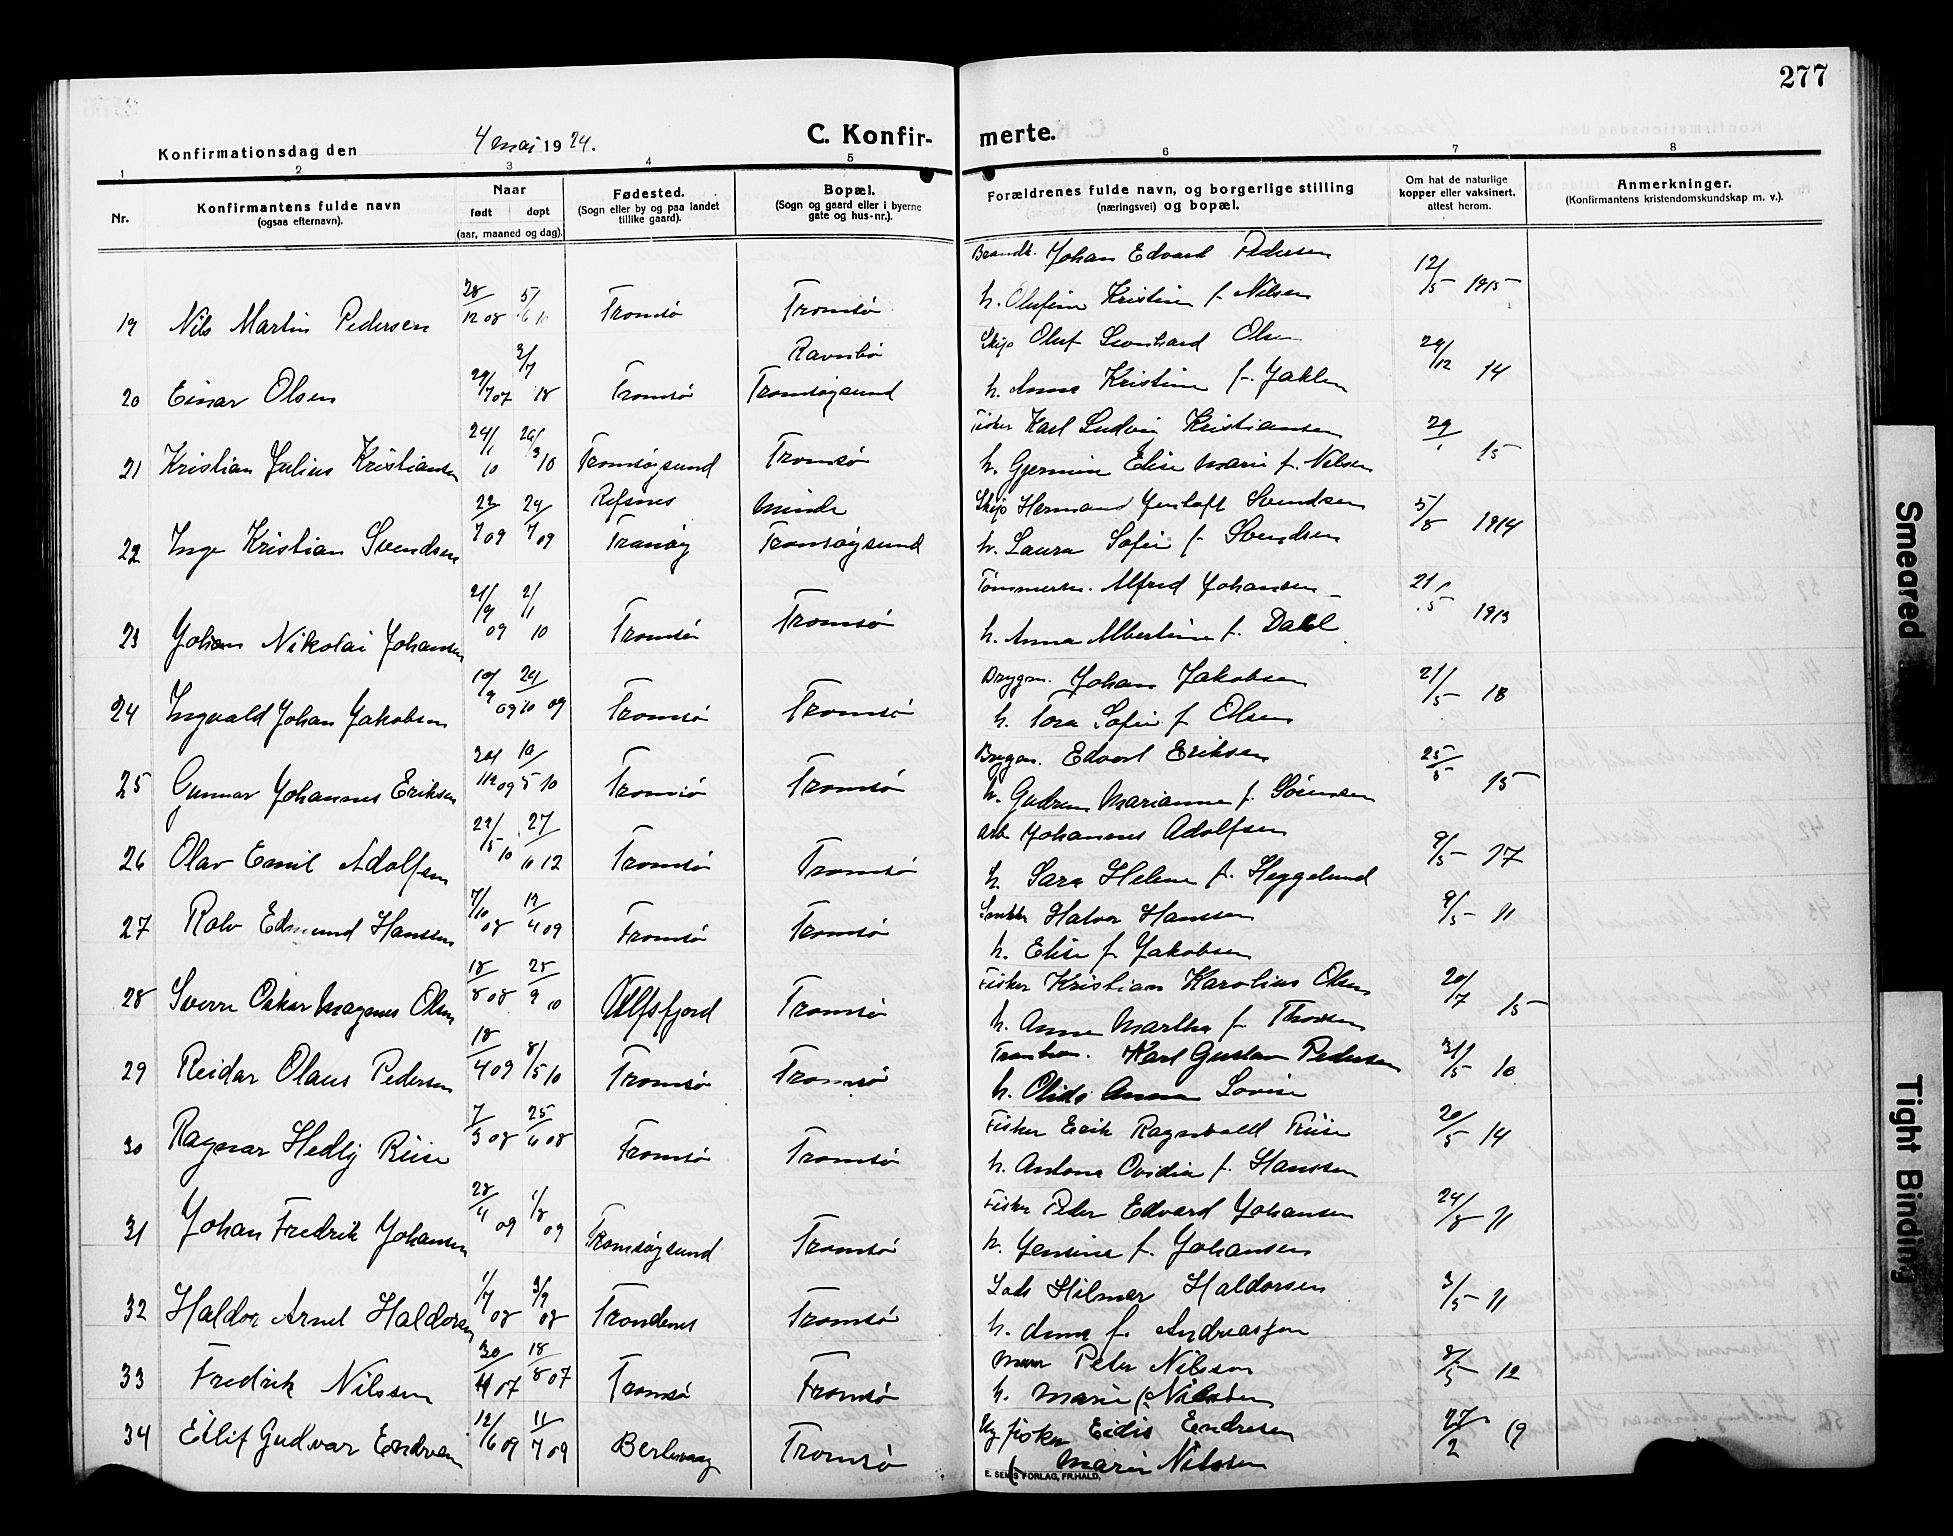 277
Konfirmationsdag den 4 mai 1924. C. Konfir- merte.
1 2 3 4 5 6 7 8
Nr.
Konfirmantens fulde navn
(ogsaa efternavn).
Naar
født døpt
(aar, maaned og dag).
Fødested.
(Sogn eller by og paa landet
tillike gaard).
Bopæl.
(Sogn og gaard eller i byerne
gate og hus-nr.).
Forældrenes fulde navn, og borgerlige stilling
(næringsvei) og bopæl.
Om hat de naturlige
kopper eller vaksinert,
attest herom.
Anmerkninger.
(Konfirmantens kristendomskundskap m. v.).
Johan Edvard Pedersen 12/5 1915
19 Nils Martin Pedersen 28/12 08 5/6 10 Tromsø Tromsø h. Olufine Kristine f. Nilsen
Ravnbø Skip Oluf Leonhard Olsen 29/12 14
20 Einar Olsen 29/7 07 3/7 18 Tromsø Tromsøysund h. Anna Kristine f.
Fisker Karl Ludvig Kristiansen 15
21 Kristian Julius Kristiansen 24/1 10 29/3 10 Tromsøysund Tromsø h. Elise Marie f. Nilsen
Refsnes Minde Skip Hermand Svendsen 5/8 1914
22 Inge Kristian Svendsen 7 09 29/7 09 Tranøy Tromsøysund h. Laura Sofie f. Svendsen
Tømmerm. Alfred Johansen 21/5 1913
23 Johan Nikolai Johansen 21/9 09 2/1 10 Tromsø Tromsø h. Anna Albertine f. Dahl
Brygm. Johan Jakobsen 21/5 18
24 Ingvald Johan Jakobsen 10/9 09 10 09 Tromsø Tromsø h. Tora Sofie f. Olsen
Brygm. Edvart Eriksen 25/5 15
25 Gunnar Johannes Eriksen 09 5 10 Tromsø Tromsø h. Gudrun Marianne f. Sørensen
Arb Johannes Adolfsen 9/5 17
26 Olav Emil Adolfsen 5 10 27/10 12 Tromsø Tromsø h. Sara Helene f. Heggelund
Snekker Halvor Hanssen 9/5 11
27 Rolv Edmund Hanssen 7/10 08 12/4 09 Tromsø Tromsø h. Elise f. Jakobsen
Fisker Kristian Karolius Olsen 20/7 15
28 Sverre Oskar Magnus Olsen 18/8 08 25/9 10 Ulfsfjord Tromsø h. Anne Martha f. Thorsen
Karl Gustav Pedersen 31/5 10
29 Reidar Olaus Pedersen 18/4 09 8/5 10 Tromsø Tromsø h. Anna Lovise
Fisker Erik Ragnvald Riise 20/5 14
30 Ragnar Hedly Riise 7/3 08 25/6 08 Tromsø Tromsø h. Antona Ovidia f. Hanssen
Fisker Peder Edvard Johansen 24/8 11
31 Johan Fredrik Johansen 28/4 09 1/8 09 Tromsøysund Tromsø h. Jensine f. Johansen
Lods Hilmar Haldorsen 3/5 11
32 Haldor Arnt Haldorsen 1/7 08 3/9 08 Trondenes Tromsø h. Anna f. Andreassen
Murer Peter Nilssen 8/5 12
33 Fredrik Nilssen 30/4 07 18/8 07 Tromsø Tromsø h. Marie f. Nilssen
fisker Eidis Endresen 27/2 19
34 Eilif Gudvar Endresen 12/6 09 11/7 09 Berlevaag Tromsø f Marie Nilssen
E. SEMS FORLAG, FR.HALD.
Smeared
Tight Binding